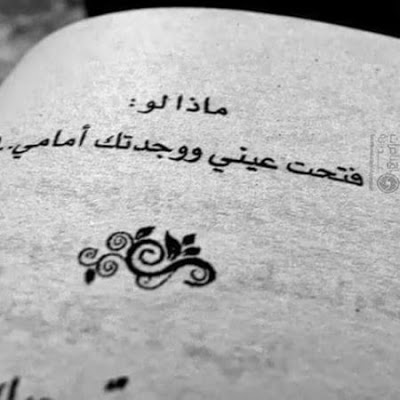 ماذا لو:
فتحت عيني ووجدتك أمامي.